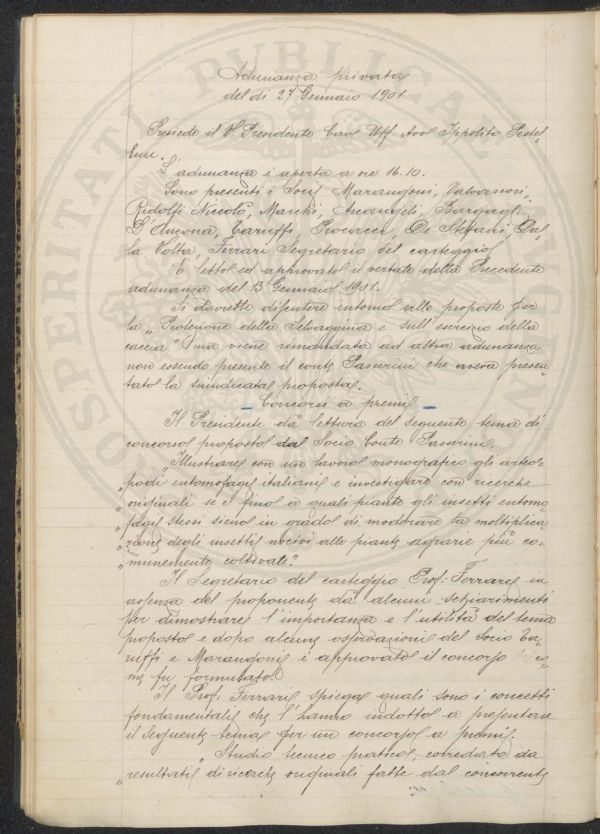 Adunanza privata
del dì 27 Gennaio 1901
Presiede il V. Presidente Cav. Uff. Avv. Ippolito Pestel-
lini.
L'adunanza è aperta a ore 16.10.
Sono presenti i Socî Marangoni, Valvassori,
Ridolfi Niccolò, Marchi, Arcangeli, Bargagli,
D'Ancona, Caruffi, Procacci, De Stefani, Dal-
la Volta, Ferrari Segretario del carteggio
È letto ed approvato il verbale della Precedente
adunanza del 13 Gennaio 1901.
Si dovrebbe discutere intorno alle proposte per
la "Protezione della Selvaggina e sull'esercizio della
caccia" ma viene rimandata ad altra adunanza
non essendo presente il conte Passerini che aveva presen-
tato la suindicata proposta.
- Concorsi a premi -
Il Presidente dà lettura del seguente tema di
concorso proposto dal Socio Conte Passerini.
"Illustrare con un lavoro monografico gli artro-
"podi entomofagi italiani e investigare con ricerche
"originali se e fino a quali piante gli insetti entomo-
"fagi stessi sieno in grado di moderare la moltiplica-
"zione degli insetti nocivi alle piante agrarie più co-
"munemente coltivate?
Il Segretario del carteggio Prof: Ferrari in
assenza del proponente dà alcuni schiarimenti
per dimostrare l'importanza e l'utilità del tema
proposto e dopo alcune osservazioni dei Socio Ca-
ruffi e Marangoni è approvato il concorso co-
me fu formulato.
Il Prof: Ferrari spiega quali sono i concetti
fondamentali che l'hanno indotto a presentare
il seguente tema per un concorso a premi.
"Studio tecnico pratico, corredato da
"resultati di ricerche originali fatte dal concorrente